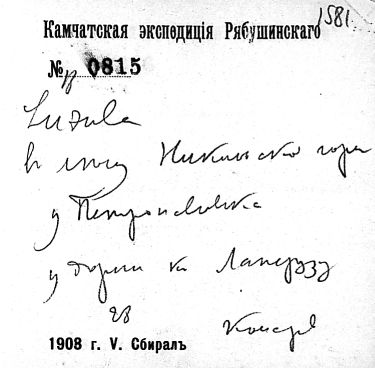 1581.
Камчатская экспедиція Рябушинскаго
№ 0815
Luzula
Никольской горы
у Петропавловска
у дороги къ Лаперузу
28
1908 г. V. Сбиралъ Комаров